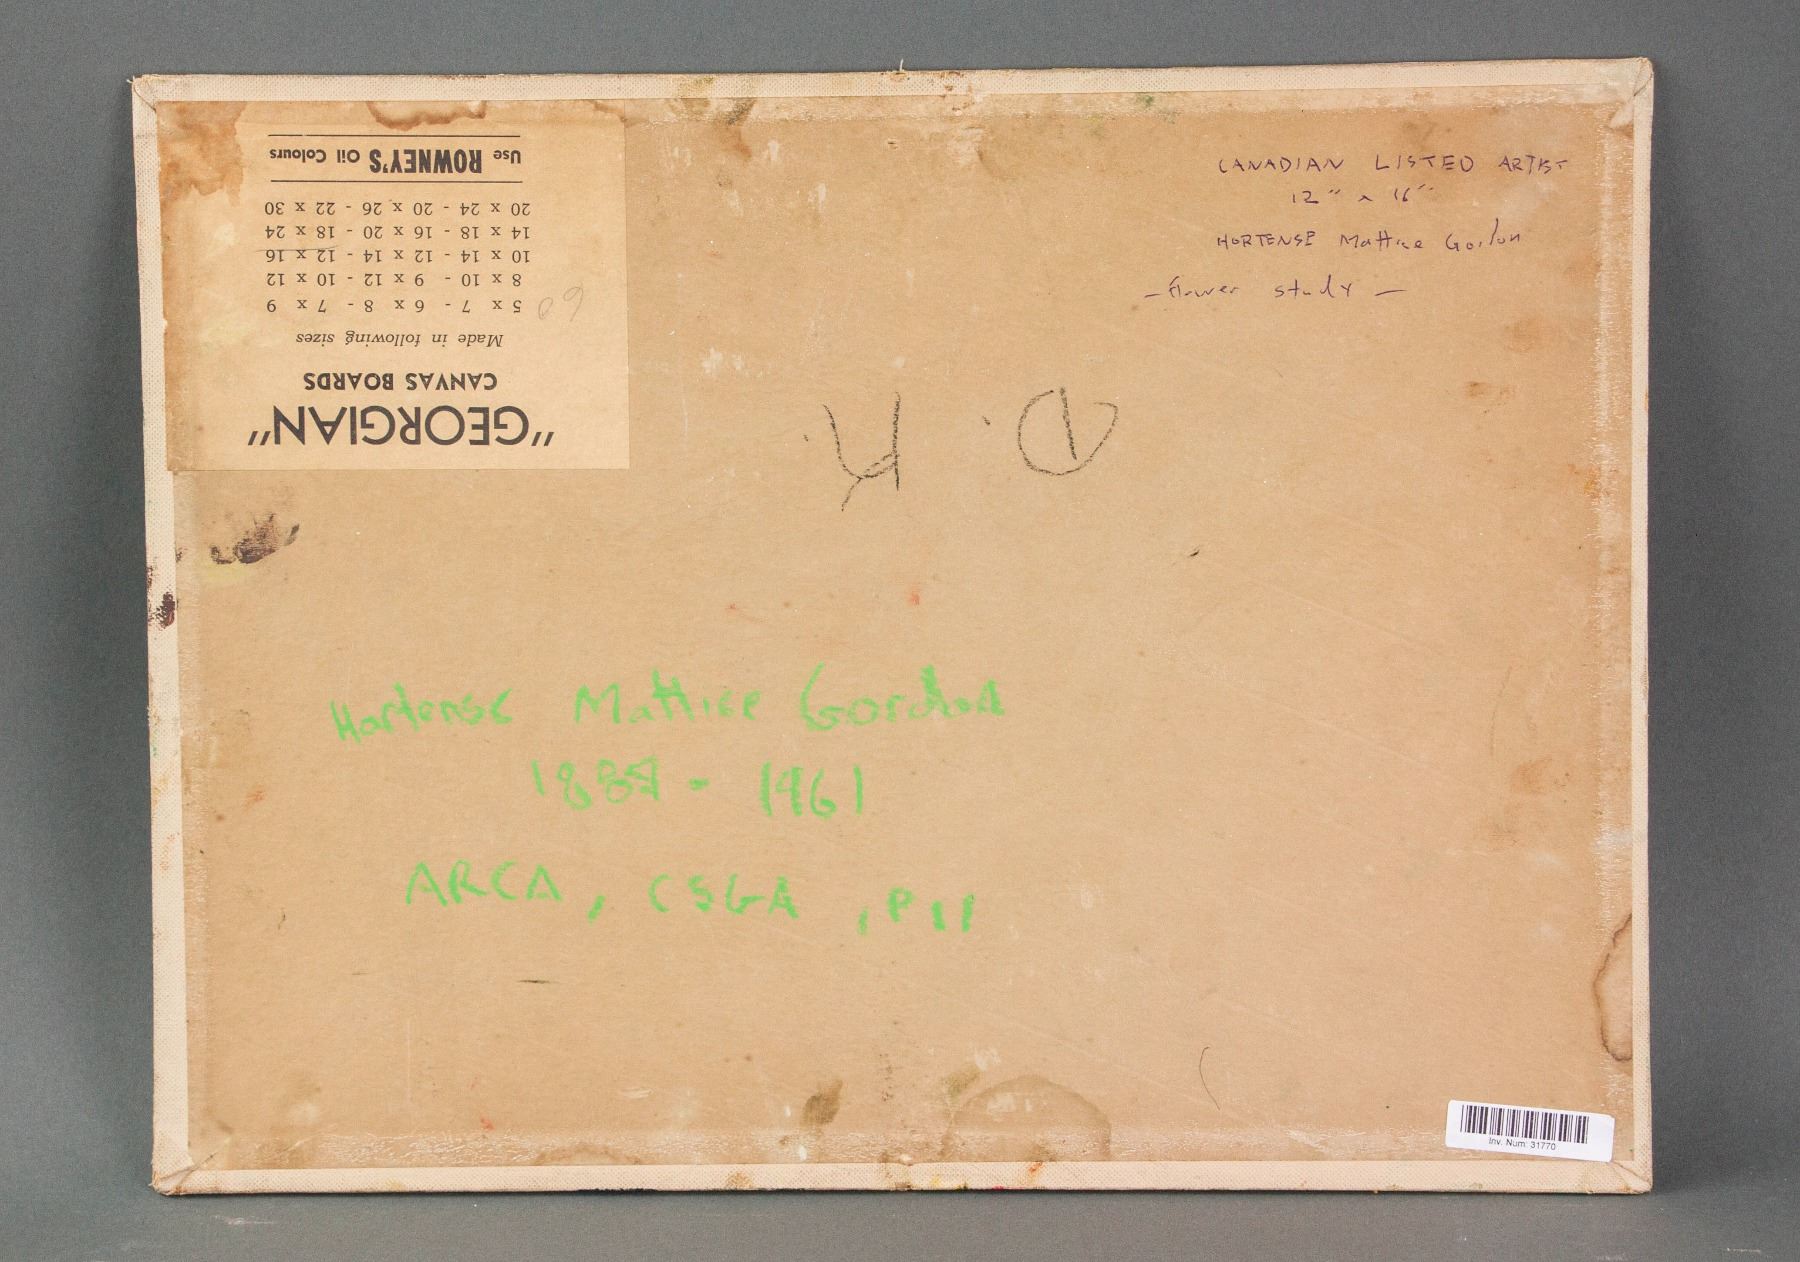 "GEORGIAN"
CANVAS BOARDS
Made in following sizes
5 x 7 - 6 x 8 - 7 x 9
8 x 10 - 9 x 12 - 10 x 12
10 x 14 - 12 x 14 - 12 x 16
14 x 18 - 16 x 20 - 18 x 24
20 x 24 - 20 x 26 - 22 x 30
Use ROWNEY'S Oil Colours
CANADIAN LISTED ARTIST
12" x 16"
HORTENSE Mattice Gordon
- flower study -
Hortense Mattice Gordon
1887 - 1961
ARCA, CSGA, P11
Inv. Num: 31770